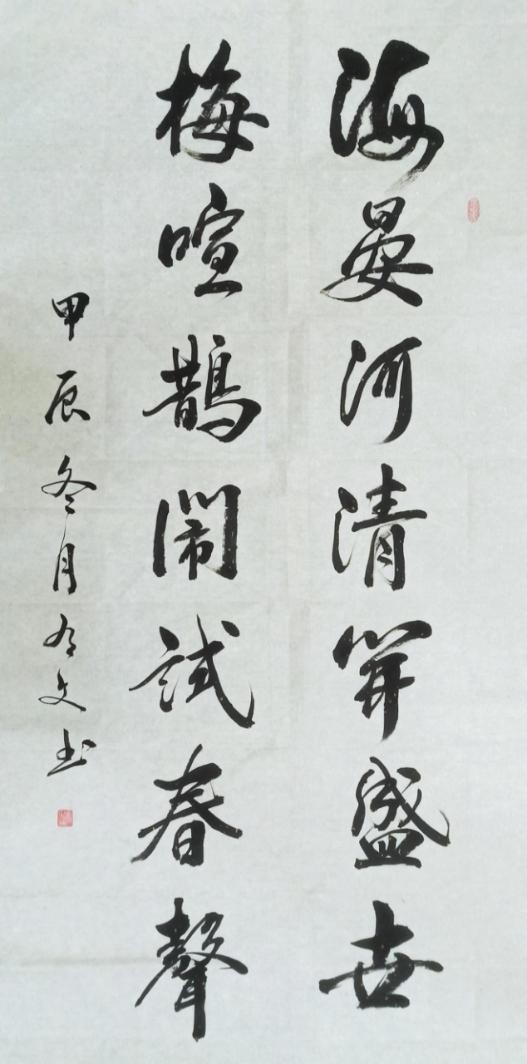 海晏河清開盛世
梅喧鵲鬧試春聲
甲辰冬月有文书